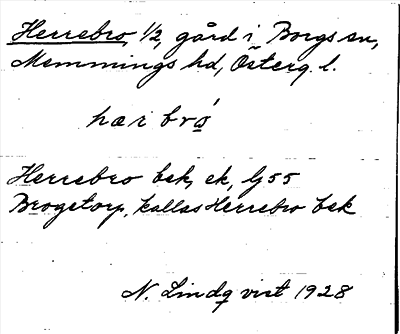 Herrebro, 1/2, gård i Borgs sn,
Memmings hd, Österg. l.
hæribrø
Herrebro bek, ek, lj 55
Brogetorp, kallas Herrebro bek
N. Lindqvist 1928